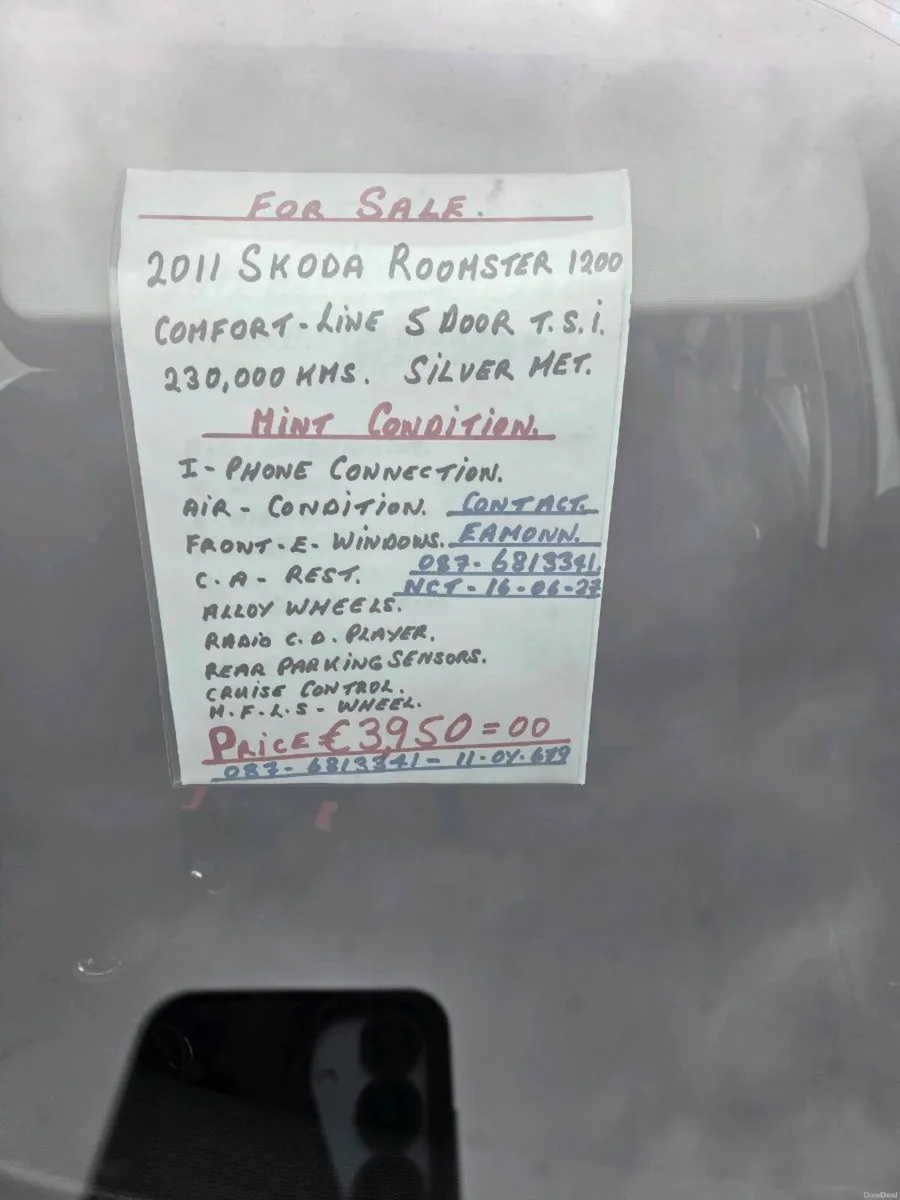 FOR SALE.
2011 SKODA ROOMSTER 1200
COMFORT-LINE 5 DOOR T.S.i.
230,000 KMS. SiLVER MET.
MiNT CONDiTiON.
I-PHONE CONNECTiON.
AiR-CONDiTiON. CONTACT.
FRONT-E-WiNDOWS. EAMONN.
C.A-REST. 087-6813341.
NCT-16-06-27
ALLOY WHEELS.
RADiO C.D. PLAYER.
REAR PARKiNG SENSORS.
CRUiSE CONTROL.
M.F.L.S-WHEEL.
PRiCE €3,950=00
087-6813341-
DoneDeal